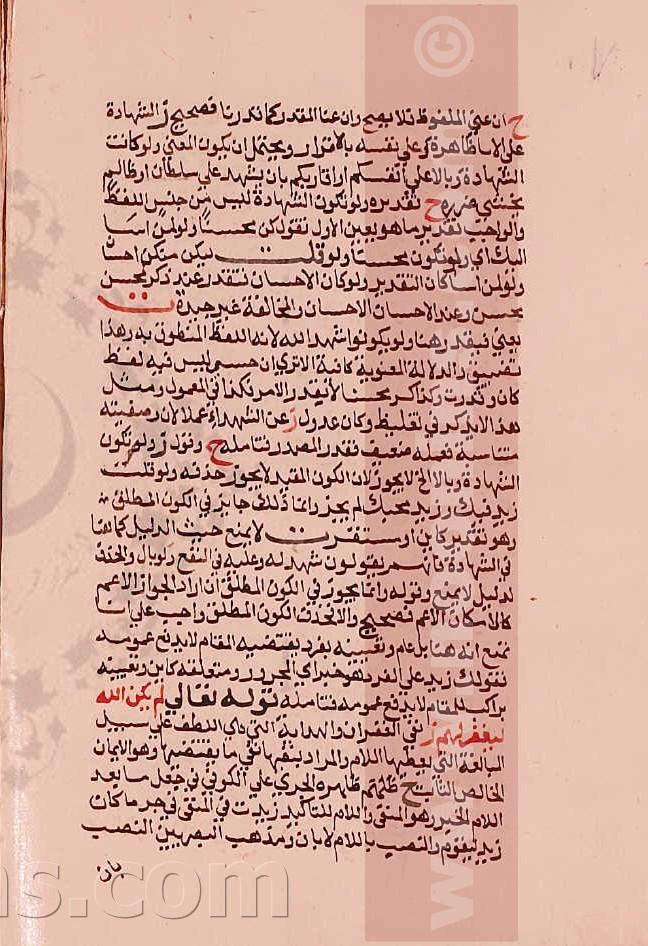 ح ان عني الملفوظ فلا يصح وان عنا المقدر كما قدرنا فصحيح ز الشهادة
على الاساظاهرة وعلى نفسه بالاقرار ويحتمل ان يكون المعنى ولو كانت
الشهادة وبالا على انفسكم او اقاربكم بان يشهد على سلطان او ظالم
يخشى منه ح تقديره ولو تكون الشهادة ليس من جنس اللفظ
والواجب تقدير ما هو بعين الاول تقول كن محسنا ولو لمن اسا
اليك اي ولو تكون محسنا ولو قلت يكن منكن احسا
ولو لمن اسا كان التقدير ولو كان الاحسان فتقدر عند ذكر محسن
محسن وعند الاحسان الاحسان والمخالفة غير جيدة ت
يعني فيقدر هنا ولو يكونوا شهدا لله لانه اللفظ المنطوق به وهذا
تضييق والدلالة المعنوية كافية الا ترى ان حسبي ليس فيه لفظ
كان وقدرت وكذا كن محسنا لا تقدر الامر فكذا في المعمول ومثل
هذا لا يذكر في تغليط وكان عدول ز عن الشهداء عملا لان وصفيته
متناسبة فعمله ضعيف فقدر المصدر فتامله ح وقول ز ولو تكون
الشهادة وبالا الخ لا يجوز لان الكون المقيد لا يجوز حذفه ولو قلت
زيد فيك وزيد محبك لم يجز وانما ذلك جايز في الكون المطلق
وهو تقدير كاين او مستقر ت لا يمنع حيث الدليل كما هنا
في الشهادة فانهم يقولون شهد له وعليه في النفع والوبال والحذف
لدليل لا يمنع وقوله وانما يجوز في الكون المطلق ان اراد الجواز الاعم
كالامكان الاعم فصحيح والا فحذف الكون المطلق واجب على انا
نمنع انه هنا بل عام وتعيينه بفرد يقتضيه المقام لا يدفع عمومه
تقولك زيد على الفرس هو خبر اي المجرور ومتعلقه كاين وتعيينه
براكب للمقام لا يدفع عمومه فتامله قوله تعالى لم يكن الله
ليغفر لهم ز نفي الغفران والهداية التي ذي اللطف على سبيل
المبالغة التي تعطيها اللام والمراد لنفيها نفي ما يقتضيها وهو الايمان
الخالص الثابت ح ظاهره الجري على الكوفي في جعل ما بعد
اللام الخبر وهو المنفي واللام للتأكيد زيدت في المنفي في خبر ما كان
زيد ليقوم والنصب باللام لا بان ومذهب البصريين النصب
بان